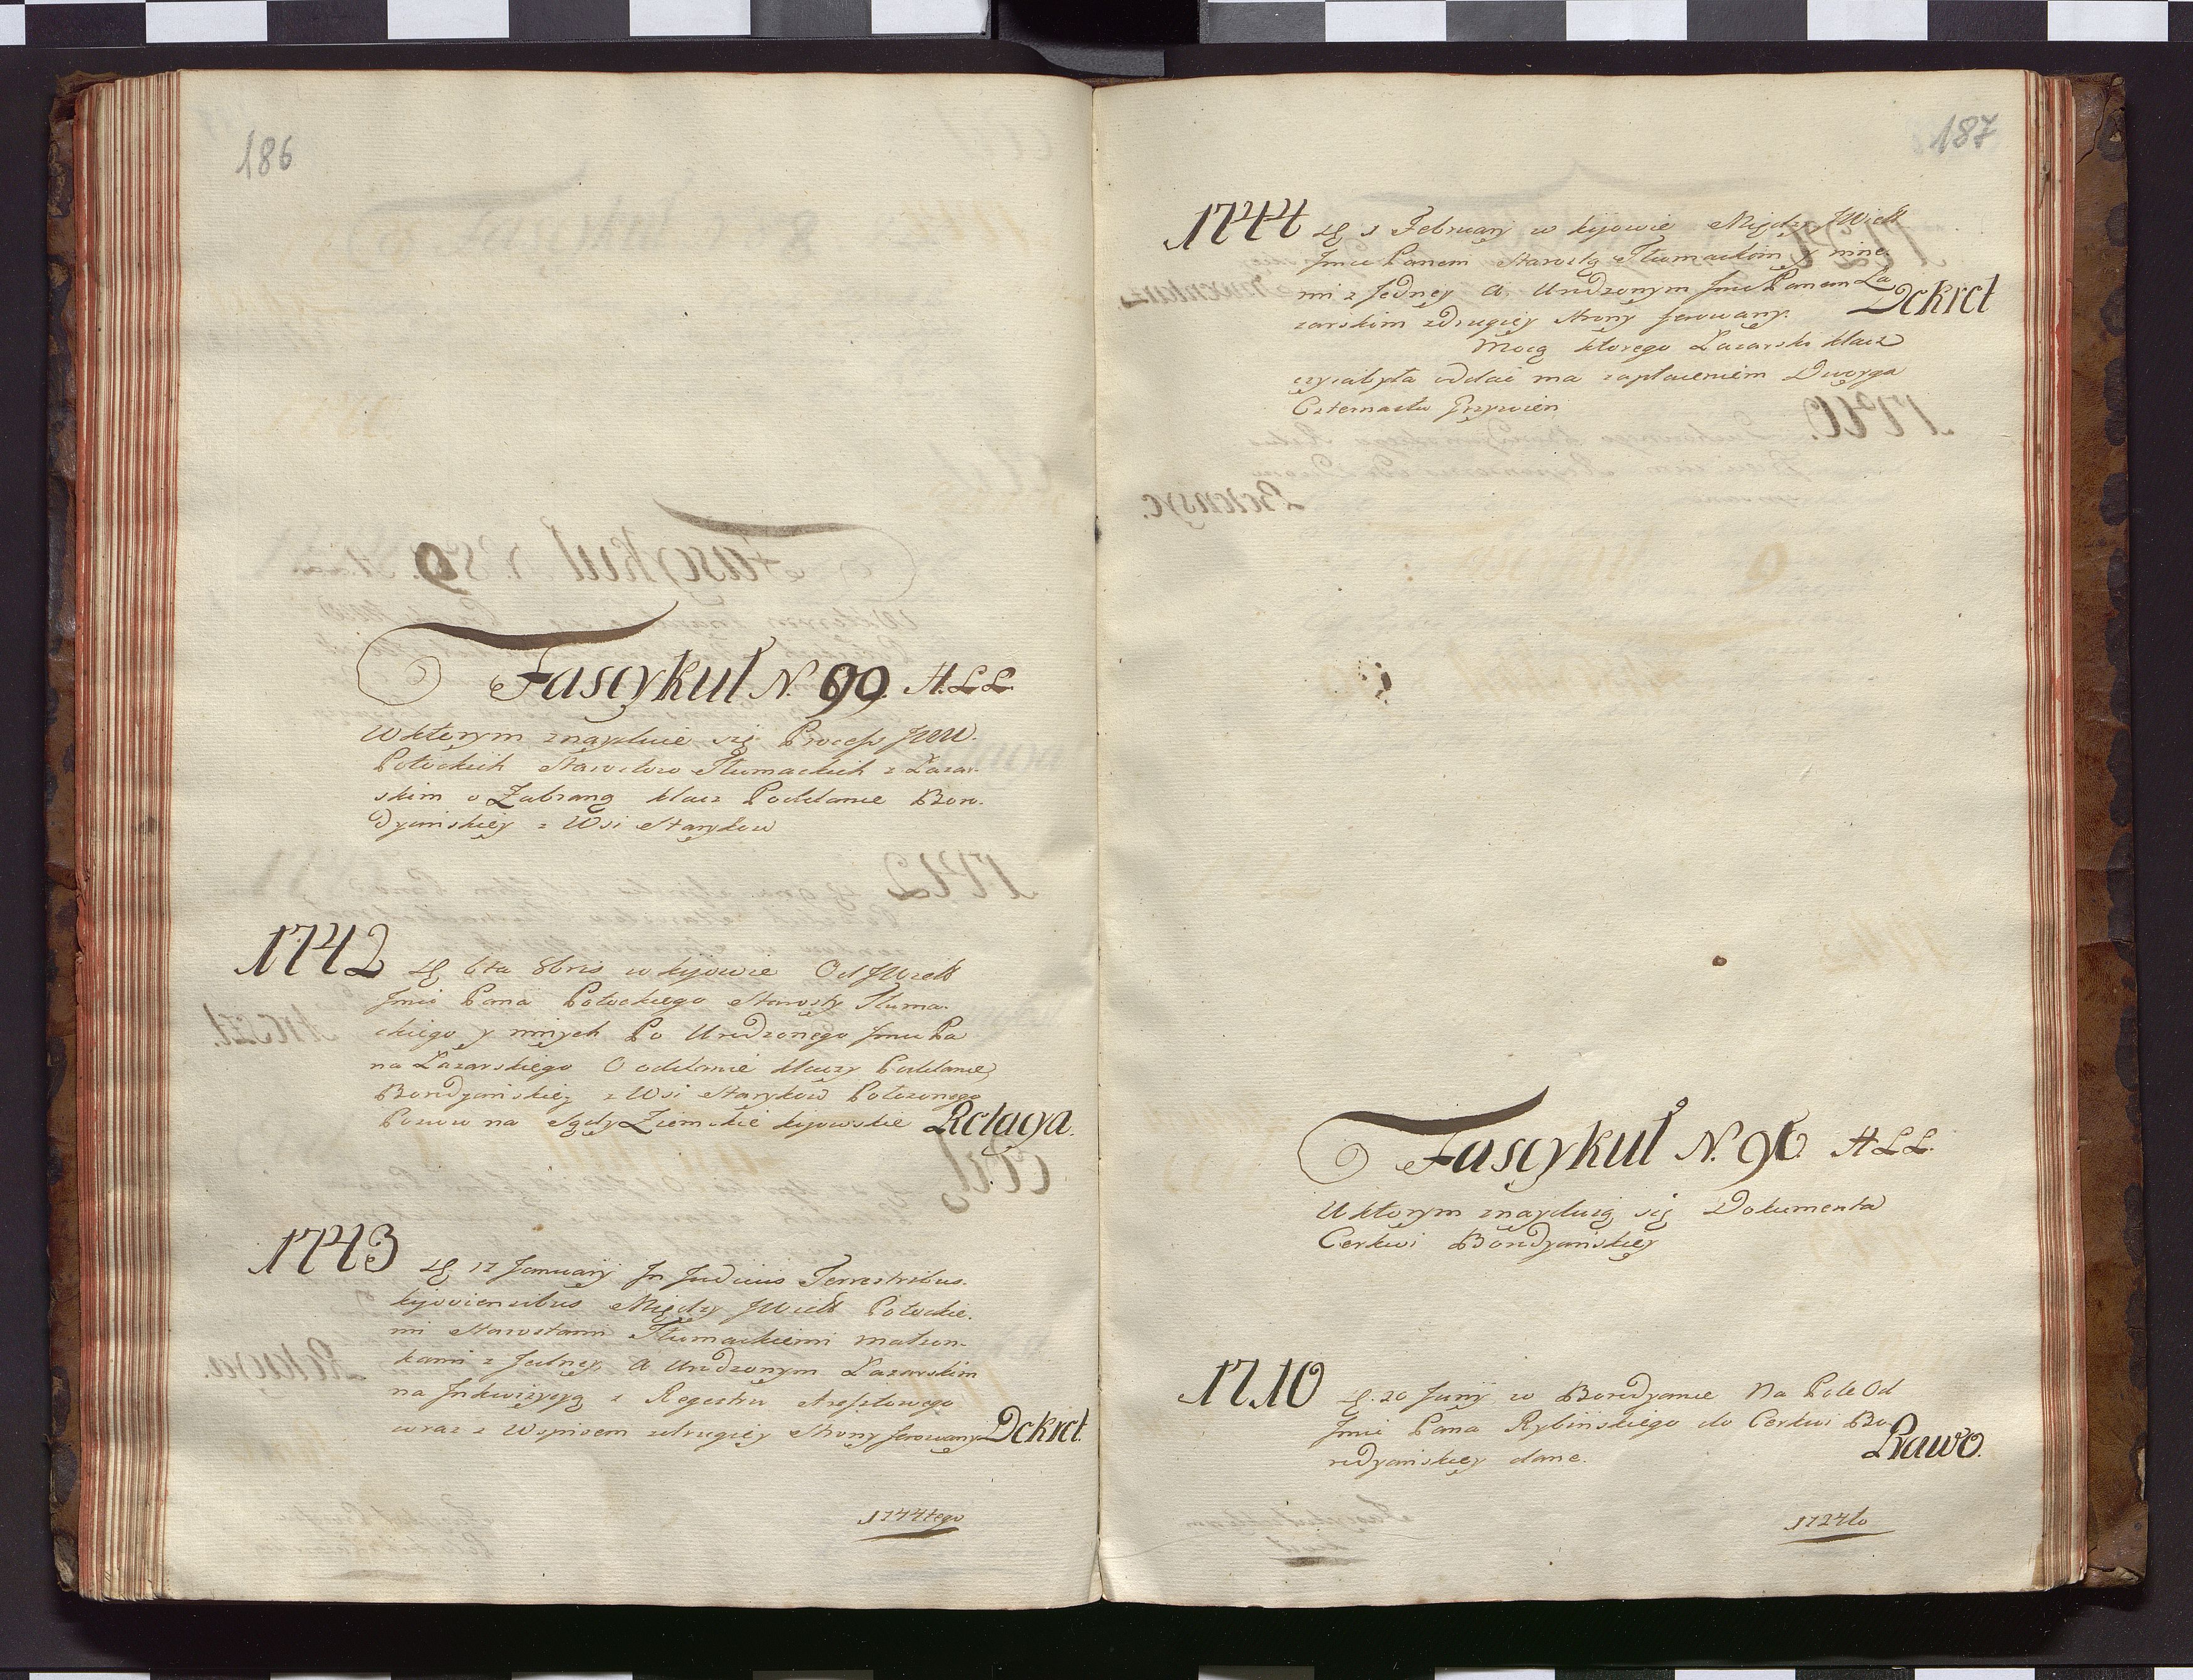 186
Fascykuł N. 90. A.L.L.
W ktorym znayduie się Process JWW.
Potockich Starostow Tłumackich z Łazar-
skim o Zabraną klacz Poddance Boro-
dyańskiey z Wsi Starykow
1742 d 6ta 8bris w kijowie Od JWielk
Jmci Pana Potockiego Starosty Tłuma-
ckiego y innych Po Urodzonego Jmci Pa
na Łazarskiego O oddanie klaczy Poddance
Borodyańskiey z Wsi Starykow Położonego
Pozwu na Sądy Ziemskie kijowskie Relacya.
1743 d 12 January In Judiciis Terrestribus
kijoviensibus Między JWielk Potockie-
mi Starostami Tłumackiemi małżon-
kami z Jedney A Urodzonym Łazarskim
na Inkwizycyą z Regestru
wraz z Wypisem z drugiey Strony ferowany Dekret.
1744tego
187
1744 d 1 February w kijowie Między JWielk
Jmci Panem Starostą Tłumackim y inne-
mi z Jedney A Urodzonym Jmci Panem Ła
zarskim z drugiey Strony ferowany. Dekret
Mocą ktorego Łazarski klacz
oddać ma zapłaceniem
Czternastu Grzywien
Fascykuł N. 96. A L.L.
W ktorym znayduią się Dokumenta
Cerkwi Borodyańskiey
1710 d. 20 Junij w Borodyance Na Pole Od
Jmci Pana Rybińskiego do Cerkwi Bo-
rodyańskiey dane. Prawo.
1724to